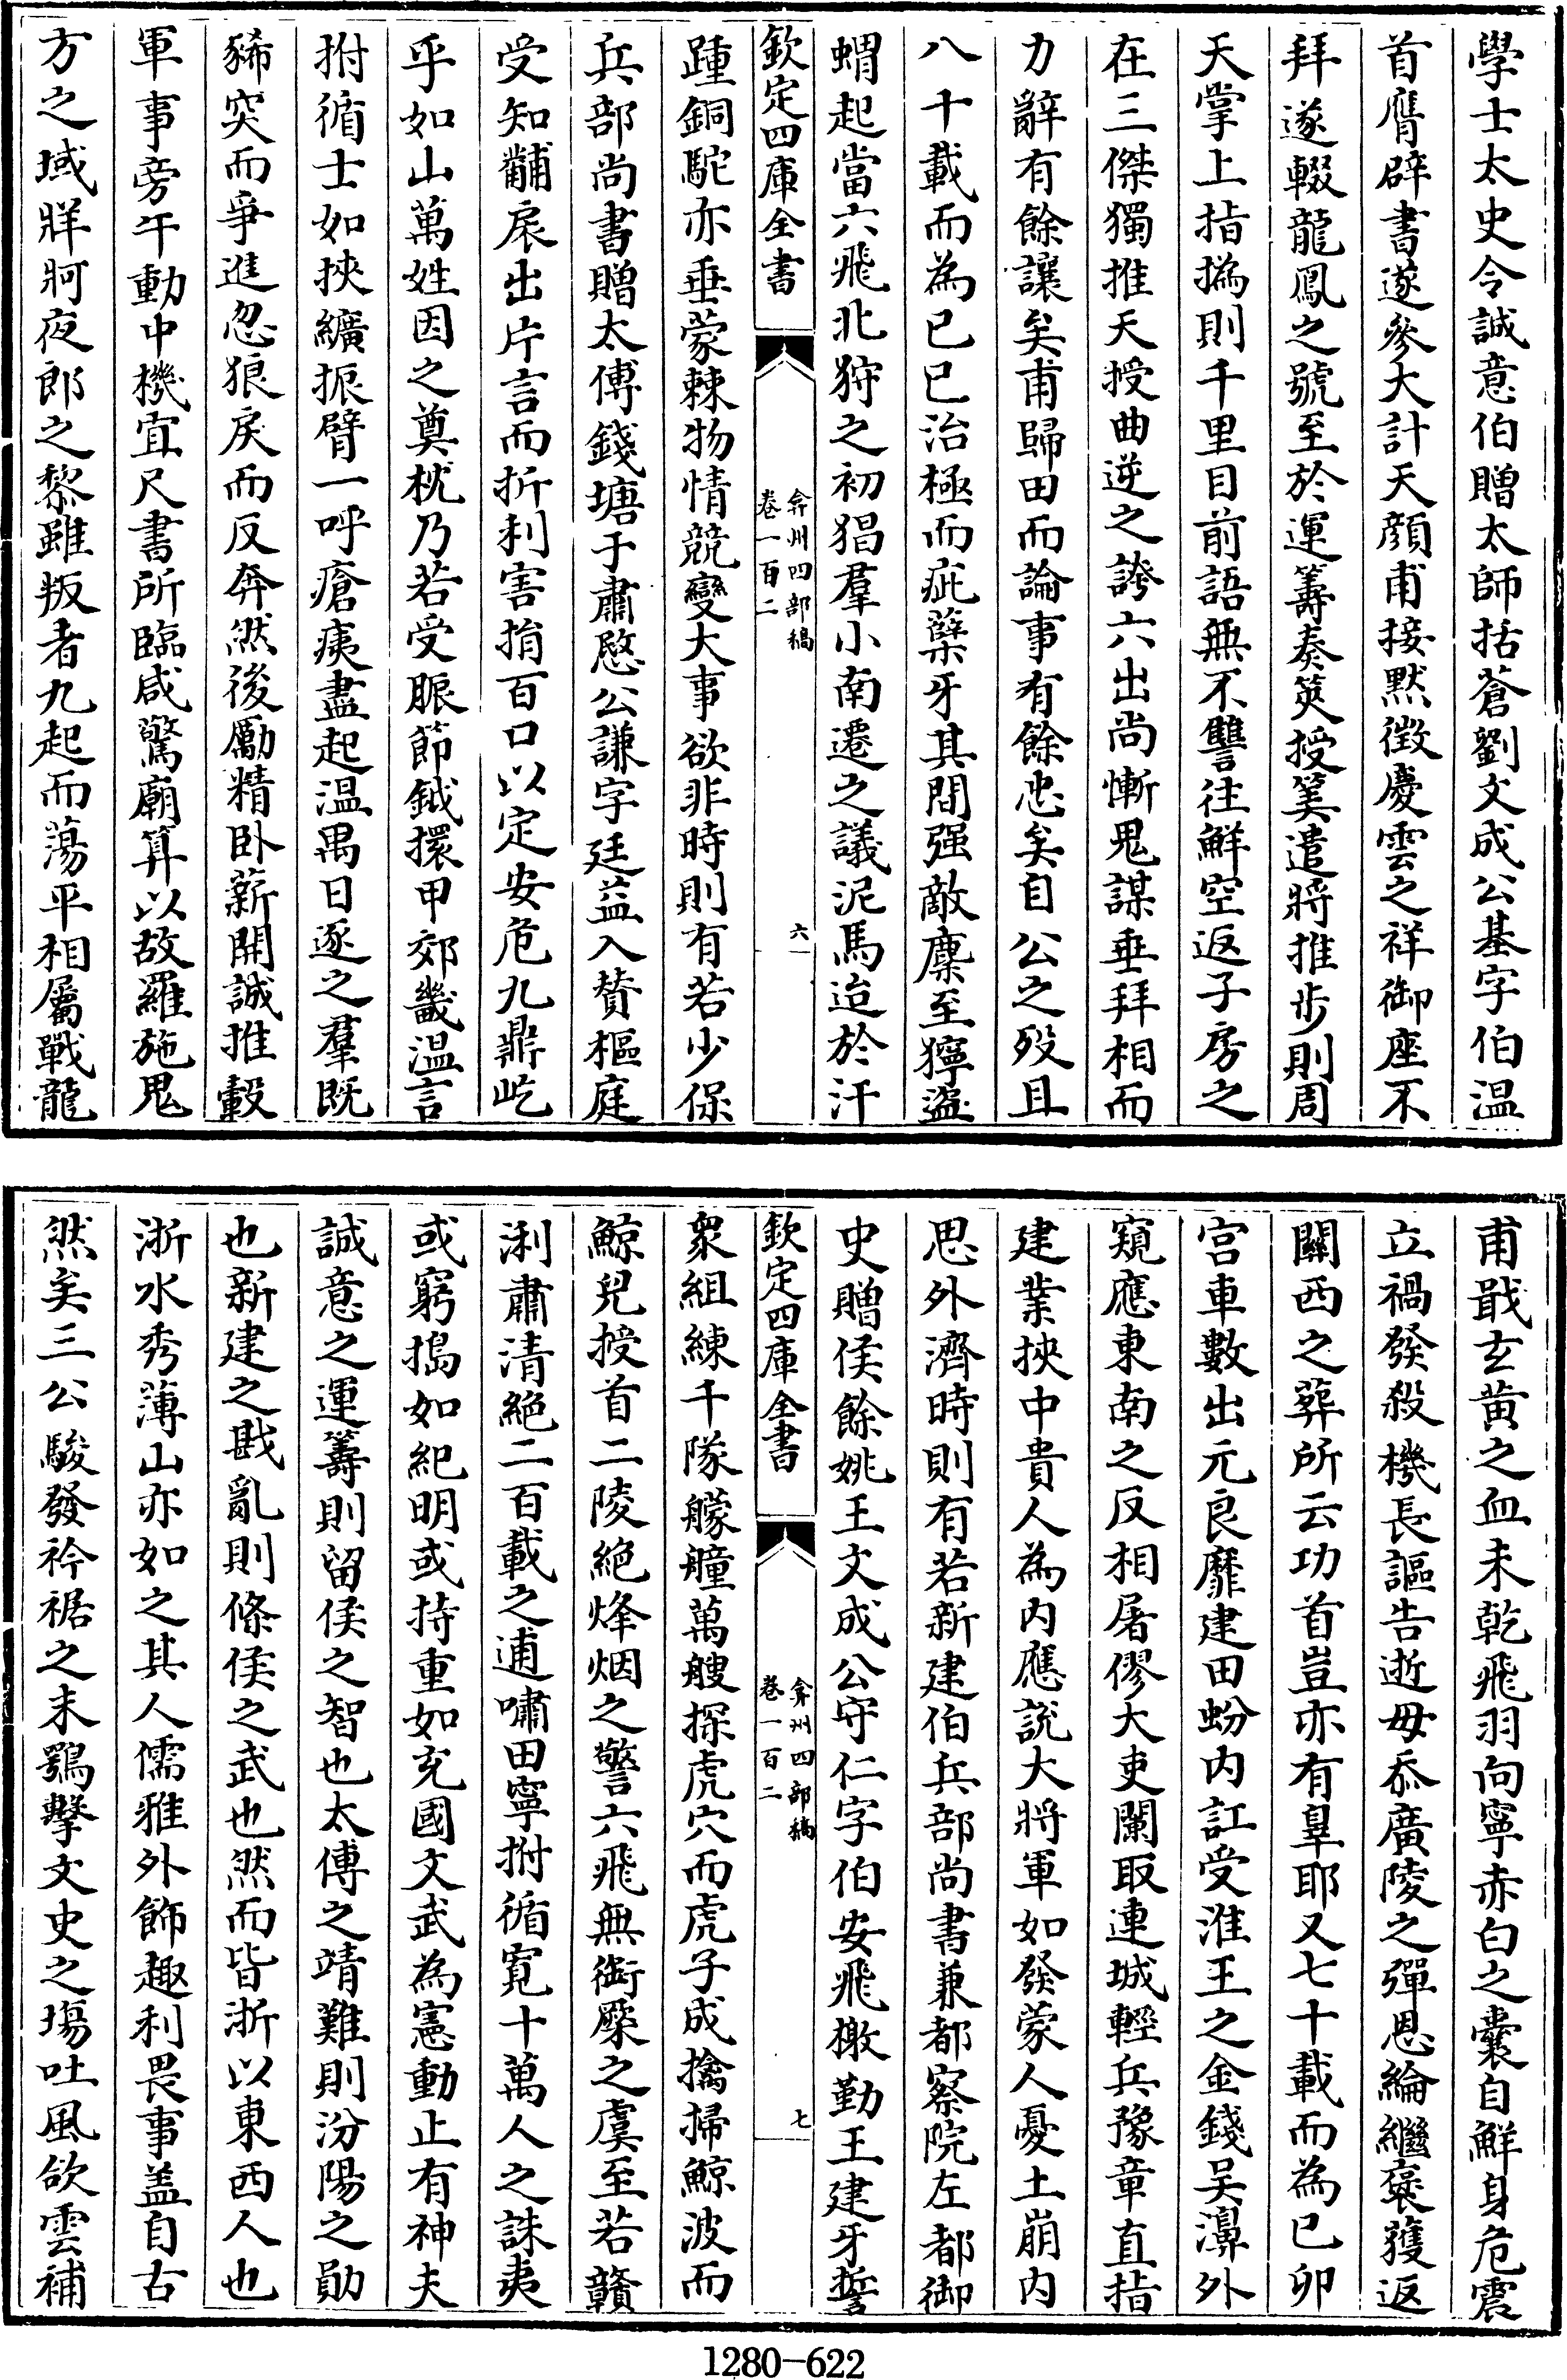 學士太史令誠意伯贈太師括蒼劉文成公基字伯溫
首膺辟書遂參大計天顔甫接黙徴慶雲之祥御座不
拜遂輟龍鳳之號至於運籌奏筴授筭遣將推步則周
天掌上指撝則千里目前語無不讐往鮮空返子房之
在三傑獨推天授曲逆之誇六出尚慚鬼謀垂拜相而
力辭有餘讓矣甫歸田而論事有餘忠矣自公之殁且
八十載而為已巳治極而疵蘖牙其間强敵麇至獰盜
蝟起當六飛北狩之初猖羣小南遷之議泥馬迨於汗
欽定四庫全書
弇州四部稿
卷一百二
六
踵銅駝亦垂蒙棘物情競變大事欲非時則有若少保
兵部尚書贈太傅錢塘于肅愍公謙字廷益入賛樞庭
受知黼扆出片言而折利害捐百口以定安危九鼎屹
乎如山萬姓因之奠枕乃若受脤節鉞擐甲郊畿温言
拊循士如挾纊振臂一呼瘡痍盡起温禺日逐之羣既
豨突而爭進忽狼戾而反奔然後勵精卧薪開誠推轂
軍事旁午動中機宜尺書所臨咸驚廟算以故羅施鬼
方之域牂牁夜郎之黎雖叛者九起而蕩平相屬戰龍
甫戢玄黄之血未乾飛羽向寧赤白之囊自鮮身危震
立禍發殺機長謳告逝毋忝廣陵之彈恩綸繼褒獲返
關西之葬所云功首豈亦有辠耶又七十載而為已卯
宫車數出元良靡建田蚡内訌受淮王之金錢吴濞外
窺應東南之反相屠僇大吏闌取連城輕兵豫章直指
建業挾中貴人為内應説大將軍如發蒙人憂土崩内
思外濟時則有若新建伯兵部尚書兼都察院左都御
史贈侯餘姚王文成公守仁字伯安飛檄勤王建牙誓
欽定四庫全書
弇州四部稿
卷一百二
七
衆組練千隊艨艟萬艘探虎穴而虎子成擒掃鯨波而
鯨兒授首二陵絶烽烟之警六飛無銜橜之虞至若贛
浰肅清絶二百載之逋嘯田寧拊循寛十萬人之誅夷
或窮搗如紀明或持重如充國文武為憲動止有神夫
誠意之運籌則留侯之智也太傅之靖難則汾陽之勛
也新建之戡亂則條侯之武也然而皆浙以東西人也
浙水秀薄山亦如之其人儒雅外飾趣利畏事盖自古
然矣三公駿發衿裾之末鶚擊文史之塲吐風欱雲補
1280-622